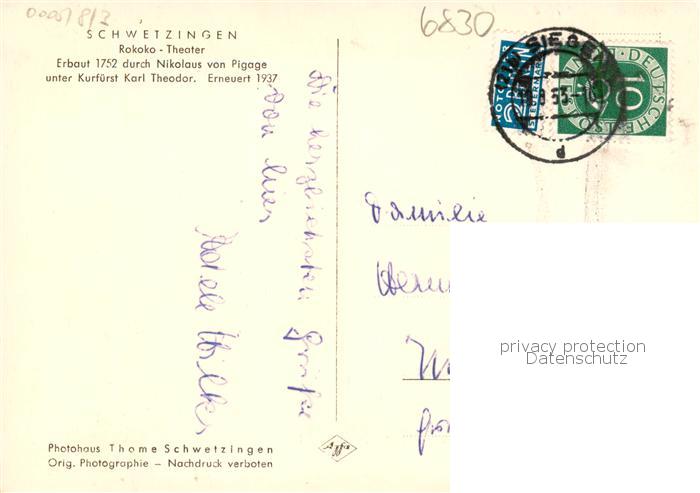 00051812
6830
SCHWETZINGEN
Rokoko - Theater
Erbaut 1752 durch Nikolaus von Pigage
unter Kurfürst Karl Theodor. Erneuert 1937
Die herzlichsten Grüße
von hier
Familie
NOTOPFER
2 BERLIN
STEUERMARKE
DEUTSCHE
POST
10
SIEGEN
53
d
privacy protection
Datenschutz
Photohaus Thome Schwetzingen
Orig. Photographie – Nachdruck verboten
Agfa